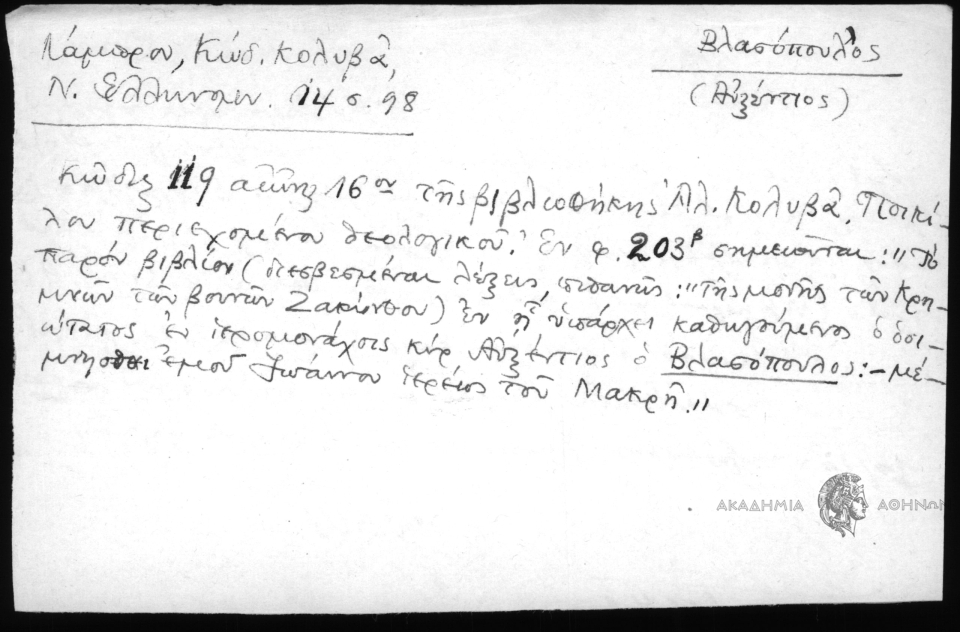 Λάμπρου, Κώδ. Κολυβᾶ,
Ν. Ἑλληνομν. 14 σ. 98
Βλασόπουλος
(Αὐξέντιος)
Κῶδιξ 119 αἰῶνος 16ου τῆς βιβλιοθήκης Ἀλ. Κολυβᾶ. Ποικί-
λου περιεχομένου θεολογικοῦ. Ἐν φ. 203β σημειοῦται: "Τὸ
παρὸν βιβλίον (διεσβεσμέναι λέξεις, πιθανῶς: "τῆς μονῆς τῶν Κρη-
μνῶν τῶν βουνῶν Ζακύνθου) ἐν ᾗ ὑπάρχει καθηγούμενος ὁ ὁσι-
ώτατος ἐν ἱερομονάχοις κύρ Αὐξέντιος ὁ Βλασόπουλος:- μέ-
μνησθαι ἐμοῦ Ἰωάννου ἱερέως τοῦ Μακρῆ."
ΑΚΑΔΗΜΙΑ ΑΘΗΝΩΝ